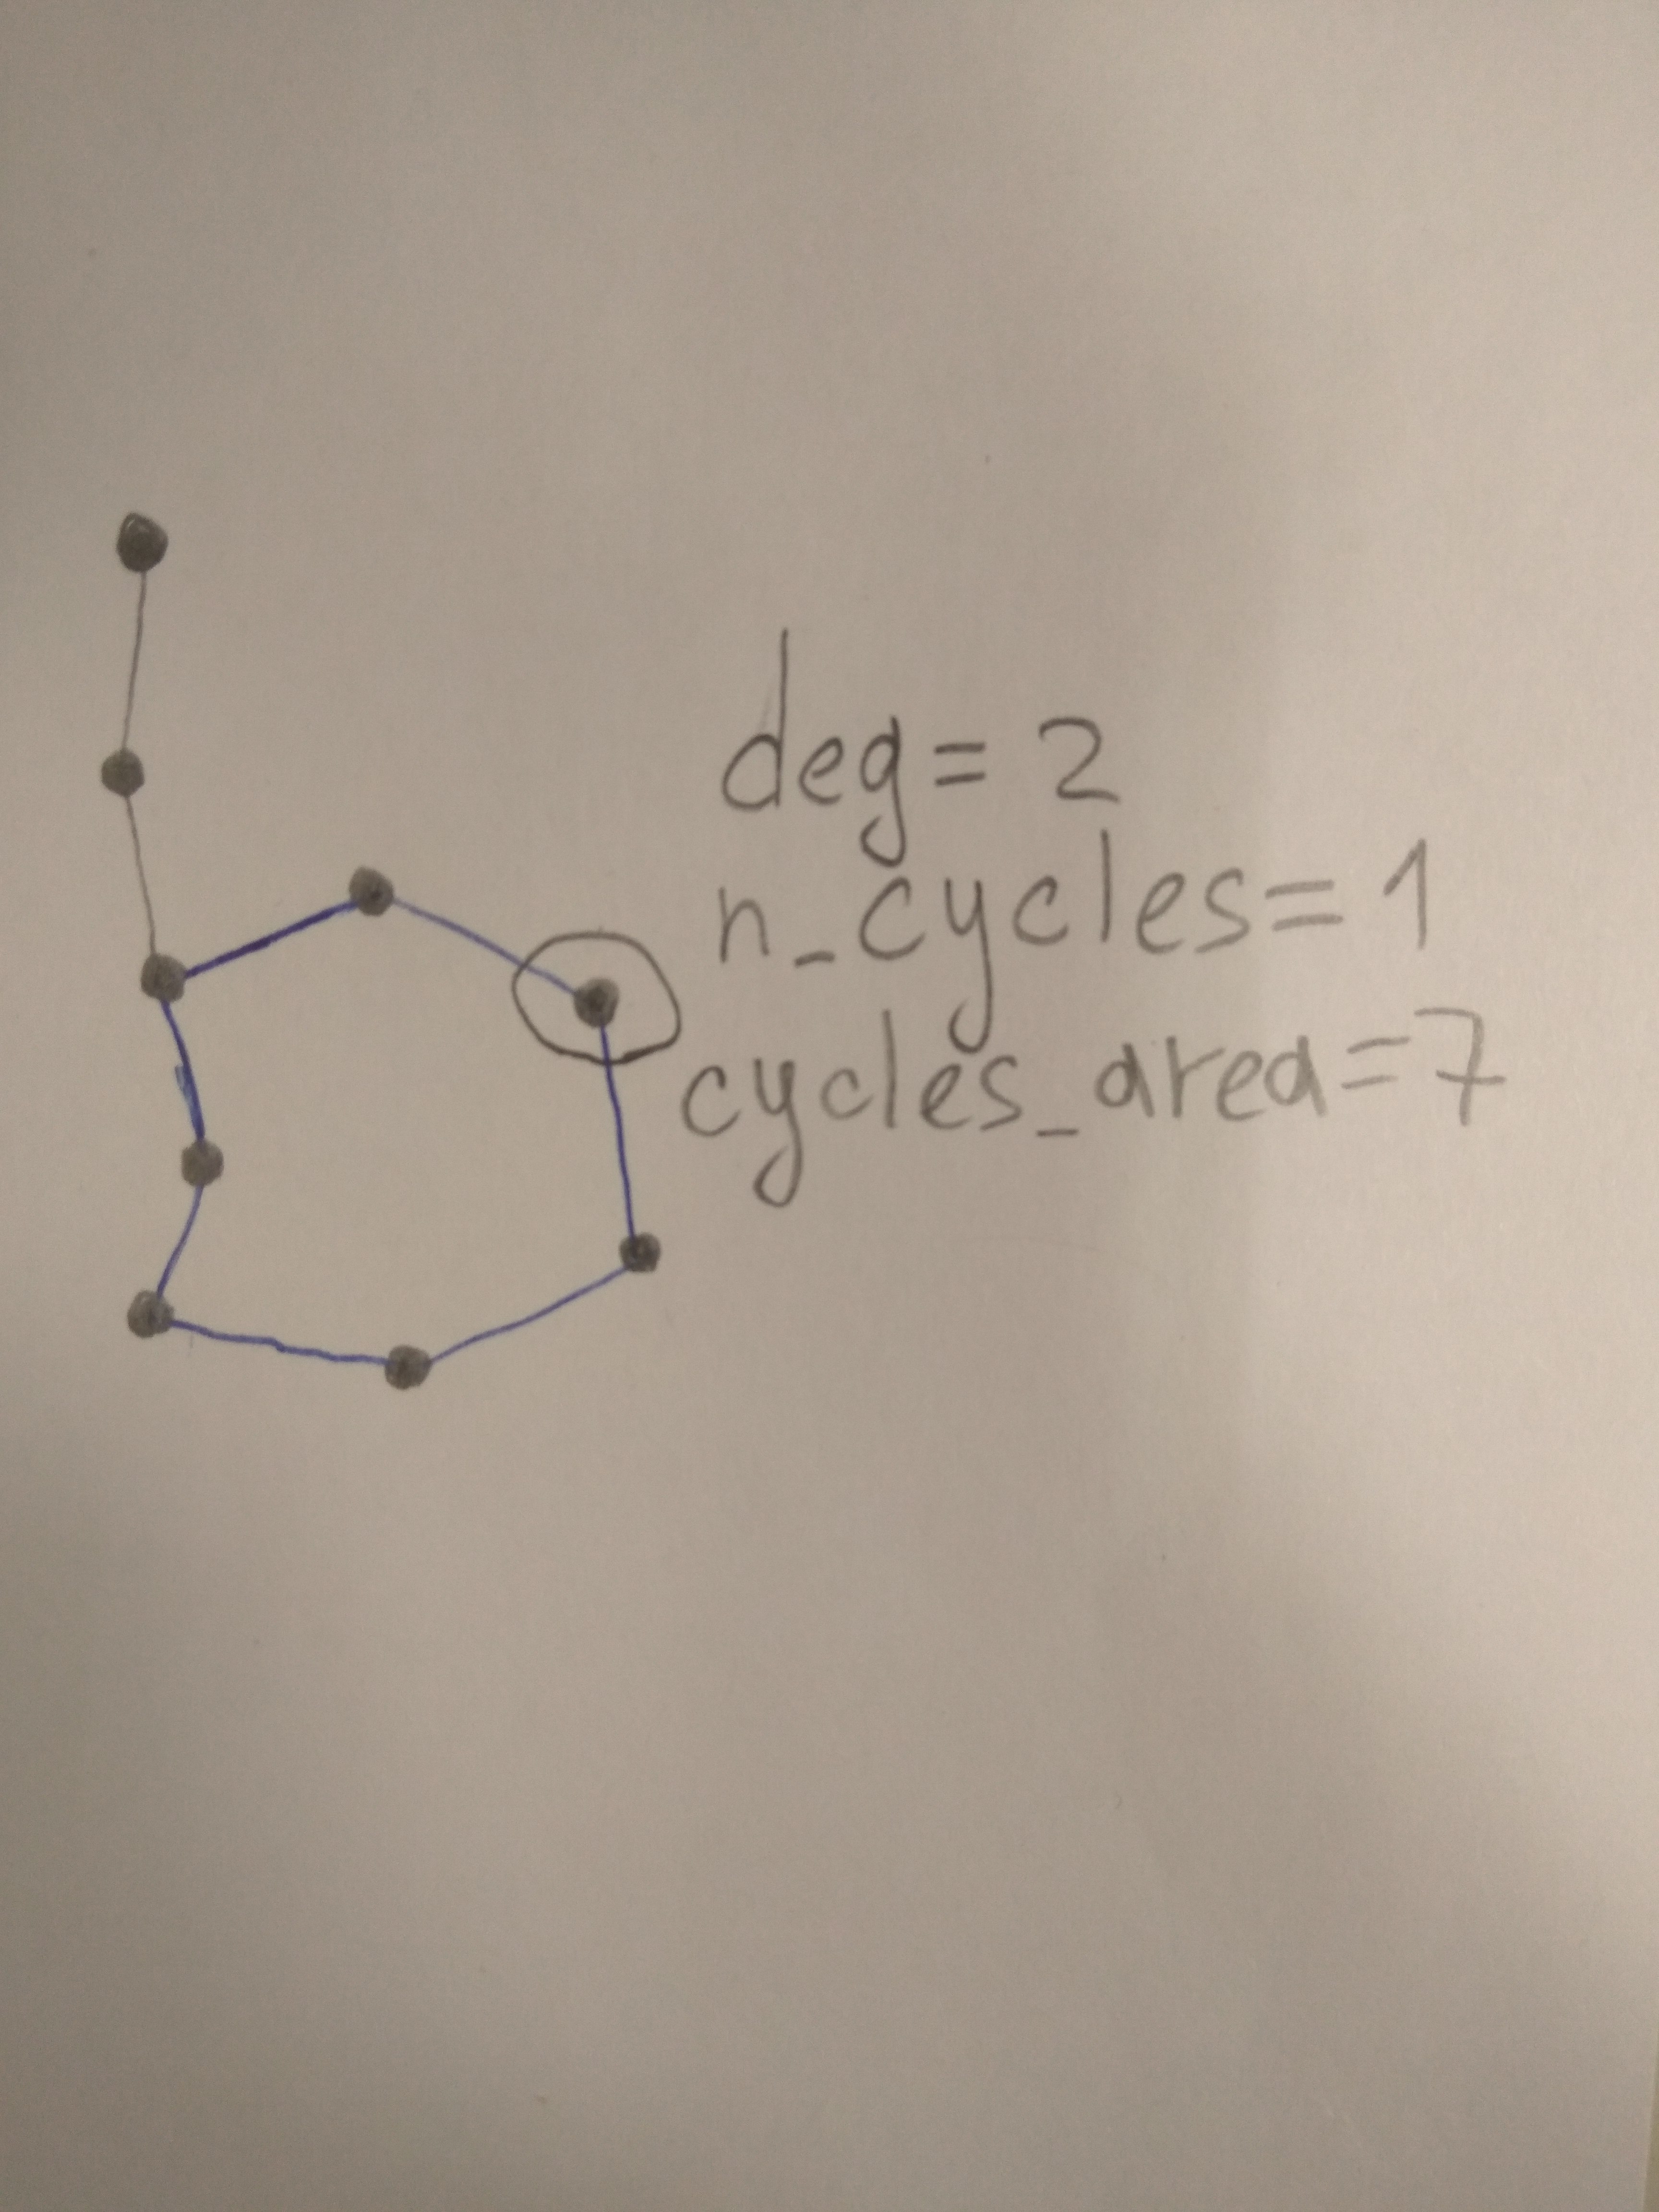 deg= 2
n_cycles= 1
cycles_area=7